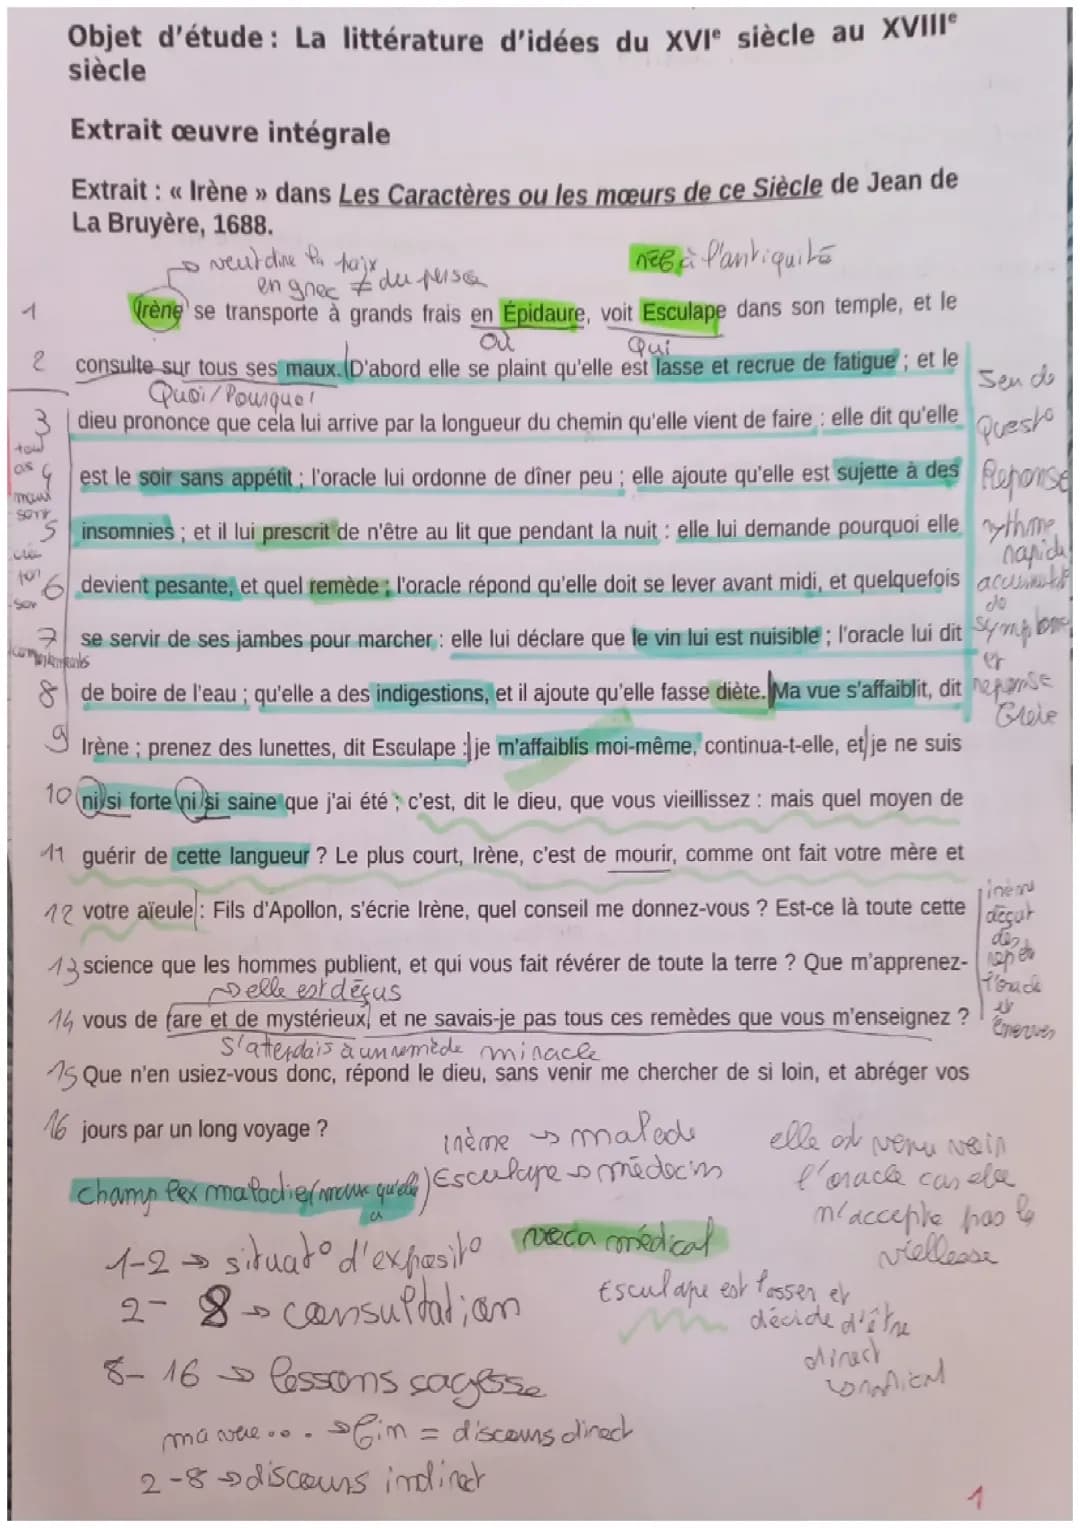 Objet d'étude : La littérature d'idées du XVIᵉ siècle au XVIIIᵉ
siècle
Extrait œuvre intégrale
Extrait : « Irène » dans Les Caractères ou les mœurs de ce Siècle de Jean de
La Bruyère, 1688.
veut dire la paix
en grec ≠ du perso
ref à l'antiquité
1 Irène se transporte à grands frais en Épidaure, voit Esculape dans son temple, et le
Où
Qui
2 consulte sur tous ses maux. D'abord elle se plaint qu'elle est lasse et recrue de fatigue ; et le
Quoi/Pourquoi
3 dieu prononce que cela lui arrive par la longueur du chemin qu'elle vient de faire : elle dit qu'elle
4 est le soir sans appétit ; l'oracle lui ordonne de dîner peu ; elle ajoute qu'elle est sujette à des
5 insomnies ; et il lui prescrit de n'être au lit que pendant la nuit : elle lui demande pourquoi elle
6 devient pesante, et quel remède ; l'oracle répond qu'elle doit se lever avant midi, et quelquefois
7 se servir de ses jambes pour marcher : elle lui déclare que le vin lui est nuisible ; l'oracle lui dit
8 de boire de l'eau ; qu'elle a des indigestions, et il ajoute qu'elle fasse diète. Ma vue s'affaiblit, dit
9 Irène ; prenez des lunettes, dit Esculape : je m'affaiblis moi-même, continua-t-elle, et je ne suis
10 ni si forte ni si saine que j'ai été ; c'est, dit le dieu, que vous vieillissez : mais quel moyen de
11 guérir de cette langueur ? Le plus court, Irène, c'est de mourir, comme ont fait votre mère et
12 votre aïeule : Fils d'Apollon, s'écrie Irène, quel conseil me donnez-vous ? Est-ce là toute cette
13 science que les hommes publient, et qui vous fait révérer de toute la terre ? Que m'apprenez-
elle est déçus
14 vous de rare et de mystérieux, et ne savais-je pas tous ces remèdes que vous m'enseignez ?
S'attendais à un remède miracle
15 Que n'en usiez-vous donc, répond le dieu, sans venir me chercher de si loin, et abréger vos
16 jours par un long voyage ?
Questo
Reponse
rythme
rapide
de
symptome
et
reponse
Brève
irène
deçut
des
l'oracle
et
énerver
irène → malade
Esculape → médecin
champ lex maladie
elle est venu voir
l'oracle car elle
n'accepte pas la
viellesse
1-2 → situat° d'exposit°
voca médical
2- 8 → consultation
Esculape est lasser et
décide d'être
direct
8- 16 → lessons sagesse
ma vue... → fin = discours direct
2-8 → discours indirect
1